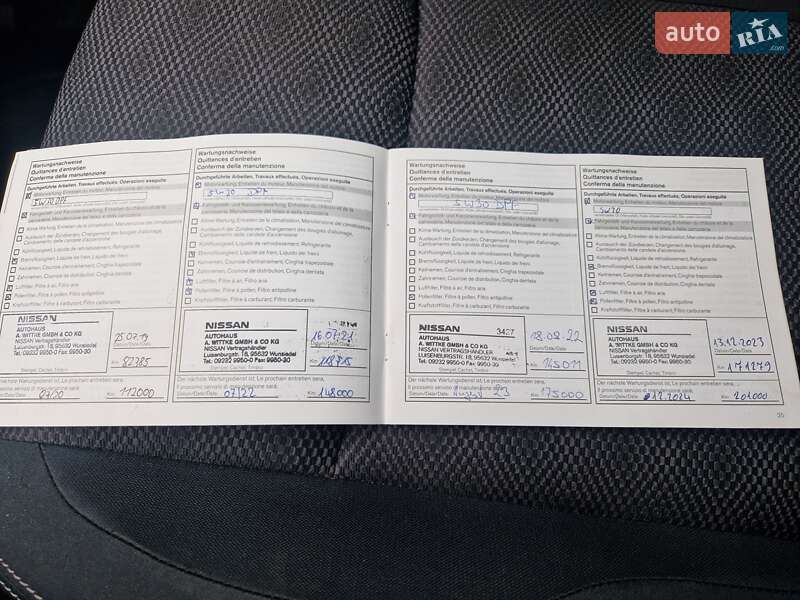 auto RIA
Wartungsnachweise
Quittances d'entretien
Conferma della manutenzione
Durchgeführte Arbeiten, Travaux effectués, Operazioni eseguite
Motorwartung, Entretien du moteur, Manutenzione del motore
5W30 DPF
Fahrgestell- und Karosseriewartung, Entretien du châssis et de la
carrosserie, Manutenzione del telaio e della carrozzeria
Klima-Wartung, Entretien de la climatisation, Manutenzione del climatizzatore
Austausch der Zündkerzen, Changement des bougies d'allumage,
Cambiamento delle candele d'accensione
Kühlflüssigkeit, Liquide de refroidissement, Refrigerante
Bremsflüssigkeit, Liquide de frein, Liquido dei freni
Keilriemen, Courroie d'entraînement, Cinghia trapezoidale
Zahnriemen, Courroie de distribution, Cinghia dentata
Luftfilter, Filtre à air, Filtro aria
Pollenfilter, Filtre à pollen, Filtro antipolline
Kraftstofffilter, Filtre à carburant, Filtro carburante
AUTOHAUS
A. WITTKE GMBH & CO KG
NISSAN Vertragshändler
Luisenburgstr. 18, 95632 Wunsiedel
Tel. 09232 9950-0 Fax 9950-30
Stempel, Cachet, Timbro
25.07.19
Datum/Date/Data
Km 82785
Der nächste Wartungsdienst ist, Le prochain entretien sera,
Il prossimo servizio di manutenzione sarà:
Datum/Date/Data 07/20 Km 112000
Wartungsnachweise
Quittances d'entretien
Conferma della manutenzione
Durchgeführte Arbeiten, Travaux effectués, Operazioni eseguite
Motorwartung, Entretien du moteur, Manutenzione del motore
5W30 DPF
Fahrgestell- und Karosseriewartung, Entretien du châssis et de la
carrosserie, Manutenzione del telaio e della carrozzeria
Klima-Wartung, Entretien de la climatisation, Manutenzione del climatizzatore
Austausch der Zündkerzen, Changement des bougies d'allumage,
Cambiamento delle candele d'accensione
Kühlflüssigkeit, Liquide de refroidissement, Refrigerante
Bremsflüssigkeit, Liquide de frein, Liquido dei freni
Keilriemen, Courroie d'entraînement, Cinghia trapezoidale
Zahnriemen, Courroie de distribution, Cinghia dentata
Luftfilter, Filtre à air, Filtro aria
Pollenfilter, Filtre à pollen, Filtro antipolline
Kraftstofffilter, Filtre à carburant, Filtro carburante
NISSAN
AUTOHAUS
A. WITTKE GMBH & CO KG
NISSAN Vertragshändler
Luisenburgstr. 18, 95632 Wunsiedel
Tel. 09232 9950-0 Fax 9950-30
Stempel, Cachet, Timbro
16.07.21
Km 118715
Der nächste Wartungsdienst ist, Le prochain entretien sera,
Il prossimo servizio di manutenzione sarà:
Datum/Date/Data 07/22 Km 148000
Wartungsnachweise
Quittances d'entretien
Conferma della manutenzione
Durchgeführte Arbeiten, Travaux effectués, Operazioni eseguite
Motorwartung, Entretien du moteur, Manutenzione del motore
5W30 DPF
Fahrgestell- und Karosseriewartung, Entretien du châssis et de la
carrosserie, Manutenzione del telaio e della carrozzeria
Klima-Wartung, Entretien de la climatisation, Manutenzione del climatizzatore
Austausch der Zündkerzen, Changement des bougies d'allumage,
Cambiamento delle candele d'accensione
Kühlflüssigkeit, Liquide de refroidissement, Refrigerante
Bremsflüssigkeit, Liquide de frein, Liquido dei freni
Keilriemen, Courroie d'entraînement, Cinghia trapezoidale
Zahnriemen, Courroie de distribution, Cinghia dentata
Luftfilter, Filtre à air, Filtro aria
Pollenfilter, Filtre à pollen, Filtro antipolline
Kraftstofffilter, Filtre à carburant, Filtro carburante
NISSAN 3427
AUTOHAUS
A. WITTKE GMBH & CO KG
NISSAN VERTRAGSHÄNDLER
LUISENBURGSTR. 18, 95632 Wunsiedel
Tel. 09232 9950-0 Fax 9950-30
Stempel, Cachet, Timbro
Datum/Date/Data
Km 145011
Der nächste Wartungsdienst ist, Le prochain entretien sera,
Il prossimo servizio di manutenzione sarà:
Datum/Date/Data August 23 Km 175000
Wartungsnachweise
Quittances d'entretien
Conferma della manutenzione
Durchgeführte Arbeiten, Travaux effectués, Operazioni eseguite
Motorwartung, Entretien du moteur, Manutenzione del motore
5W30
Fahrgestell- und Karosseriewartung, Entretien du châssis et de la
carrosserie, Manutenzione del telaio e della carrozzeria
Klima-Wartung, Entretien de la climatisation, Manutenzione del climatizzatore
Austausch der Zündkerzen, Changement des bougies d'allumage,
Cambiamento delle candele d'accensione
Kühlflüssigkeit, Liquide de refroidissement, Refrigerante
Bremsflüssigkeit, Liquide de frein, Liquido dei freni
Keilriemen, Courroie d'entraînement, Cinghia trapezoidale
Zahnriemen, Courroie de distribution, Cinghia dentata
Luftfilter, Filtre à air, Filtro aria
Pollenfilter, Filtre à pollen, Filtro antipolline
Kraftstofffilter, Filtre à carburant, Filtro carburante
NISSAN
AUTOHAUS
A. WITTKE GMBH & CO KG
NISSAN Vertragshändler
Luisenburgstr. 18, 95632 Wunsiedel
Tel. 09232 9950-0 Fax 9950-30
Stempel, Cachet, Timbro
13.12.2023
Datum/Date/Data
Km 171279
Der nächste Wartungsdienst ist, Le prochain entretien sera,
Il prossimo servizio di manutenzione sarà:
Datum/Date/Data 12.2024 Km 201000
35